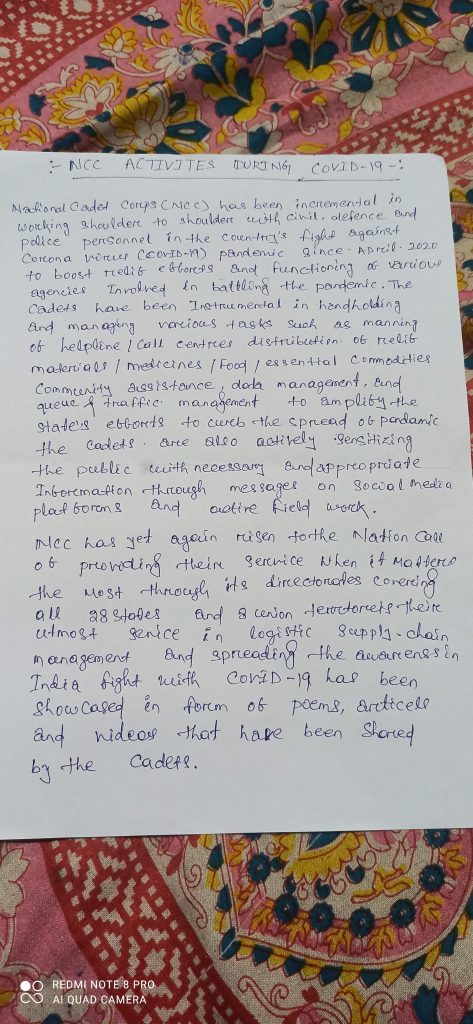 :- NCC ACTIVITES DURING COVID-19 -:
National Cadet Corps (NCC) has been incremental in
working shoulder to shoulder with civil. defence and
police personnel in the country's fight against
Corona virus (COVID-19) pandemic since. April. 2020
to boost relief efforts and functioning of various
agencies Involved in battling the pandemic. The
Cadets have been Instrumental in handholding
and managing various tasks such as manning
of helpline / Call centres distribution of relief
materials / medicines / Food / essential Commodities
Community assistance, data management, and
queue & traffic management to amplify the
state's efforts to curb the spread of pandamic
the cadets. are also actively sensitizing
the public with necessary and appropriate
Information through messages on Social media
platforms and active field work.
NCC has yet again risen to the Nation Call
of providing their Service When it Matters
the Most through its directorates covering
all 28 States and 8 union their
utmost in logistic Supply. chain
management and spreading the in
India fight with COVID-19 has been
Showcased in form of poems,
and that have been Shared
by the Cadets.
REDMI NOTE 8 PRO
AI QUAD CAMERA